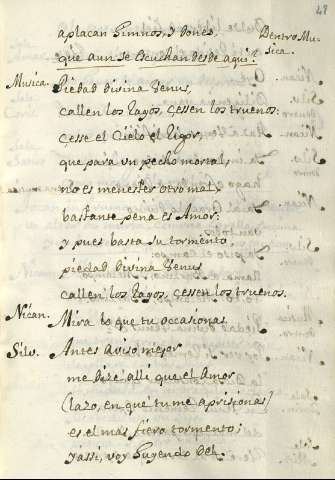 48
aplacan Himnos, y dones,
Dentro Mu-
sica.
que aun se escuchan desde aqui?
Musica. Piedad divina Venus,
callen los Rayos, cessen los truenos:
cesse el Cielo el Rigor,
que para un pecho mortal,
no es menester otro mal,
bastante pena es Amor:
y pues basta su tormento,
piedad divina Venus
callen los Rayos, cessen los truenos.
Nican. Mira lo que tu occasionas.
Silv. Antes aviso mejor
me dize alli que el Amor
(lazo, en que tu me aprisionas)
es el mas fiero tormento;
y assi, voy huyendo del.